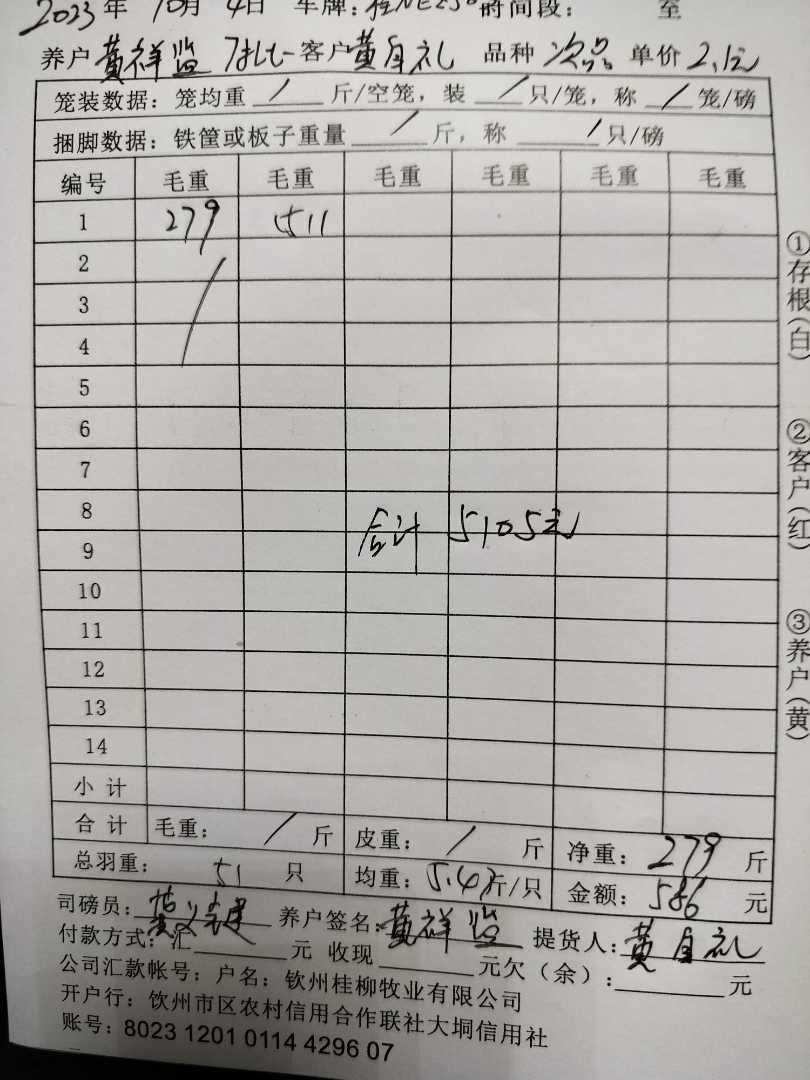 2023年 10月 4日 车牌: 桂NE230 时间段: 至
养户 黄祥监 客户 黄自礼 品种 次品 单价 2.1元
笼装数据: 笼均重 / 斤/空笼, 装 / 只/笼, 称 / 笼/磅
捆脚数据: 铁筐或板子重量 / 斤, 称 / 只/磅
编号 毛重 毛重 毛重 毛重 毛重 毛重
1 279 511
2
3
4
5
6
7
8
合计 5105元
9
10
11
12
13
14
小计
合计 毛重: / 斤 皮重: / 斤 净重: 279 斤
总羽重: 51 只 均重: 5.47斤/只 金额: 586 元
司磅员: 黄 建 养户签名: 黄祥监 提货人: 黄自礼
付款方式: 汇 元 收现 元欠(余): 元
公司汇款帐号: 户名: 钦州桂柳牧业有限公司
开户行: 钦州市区农村信用合作联社大垌信用社
账号: 8023 1201 0114 4296 07
①存根(白)
②客户(红)
③养户(黄)